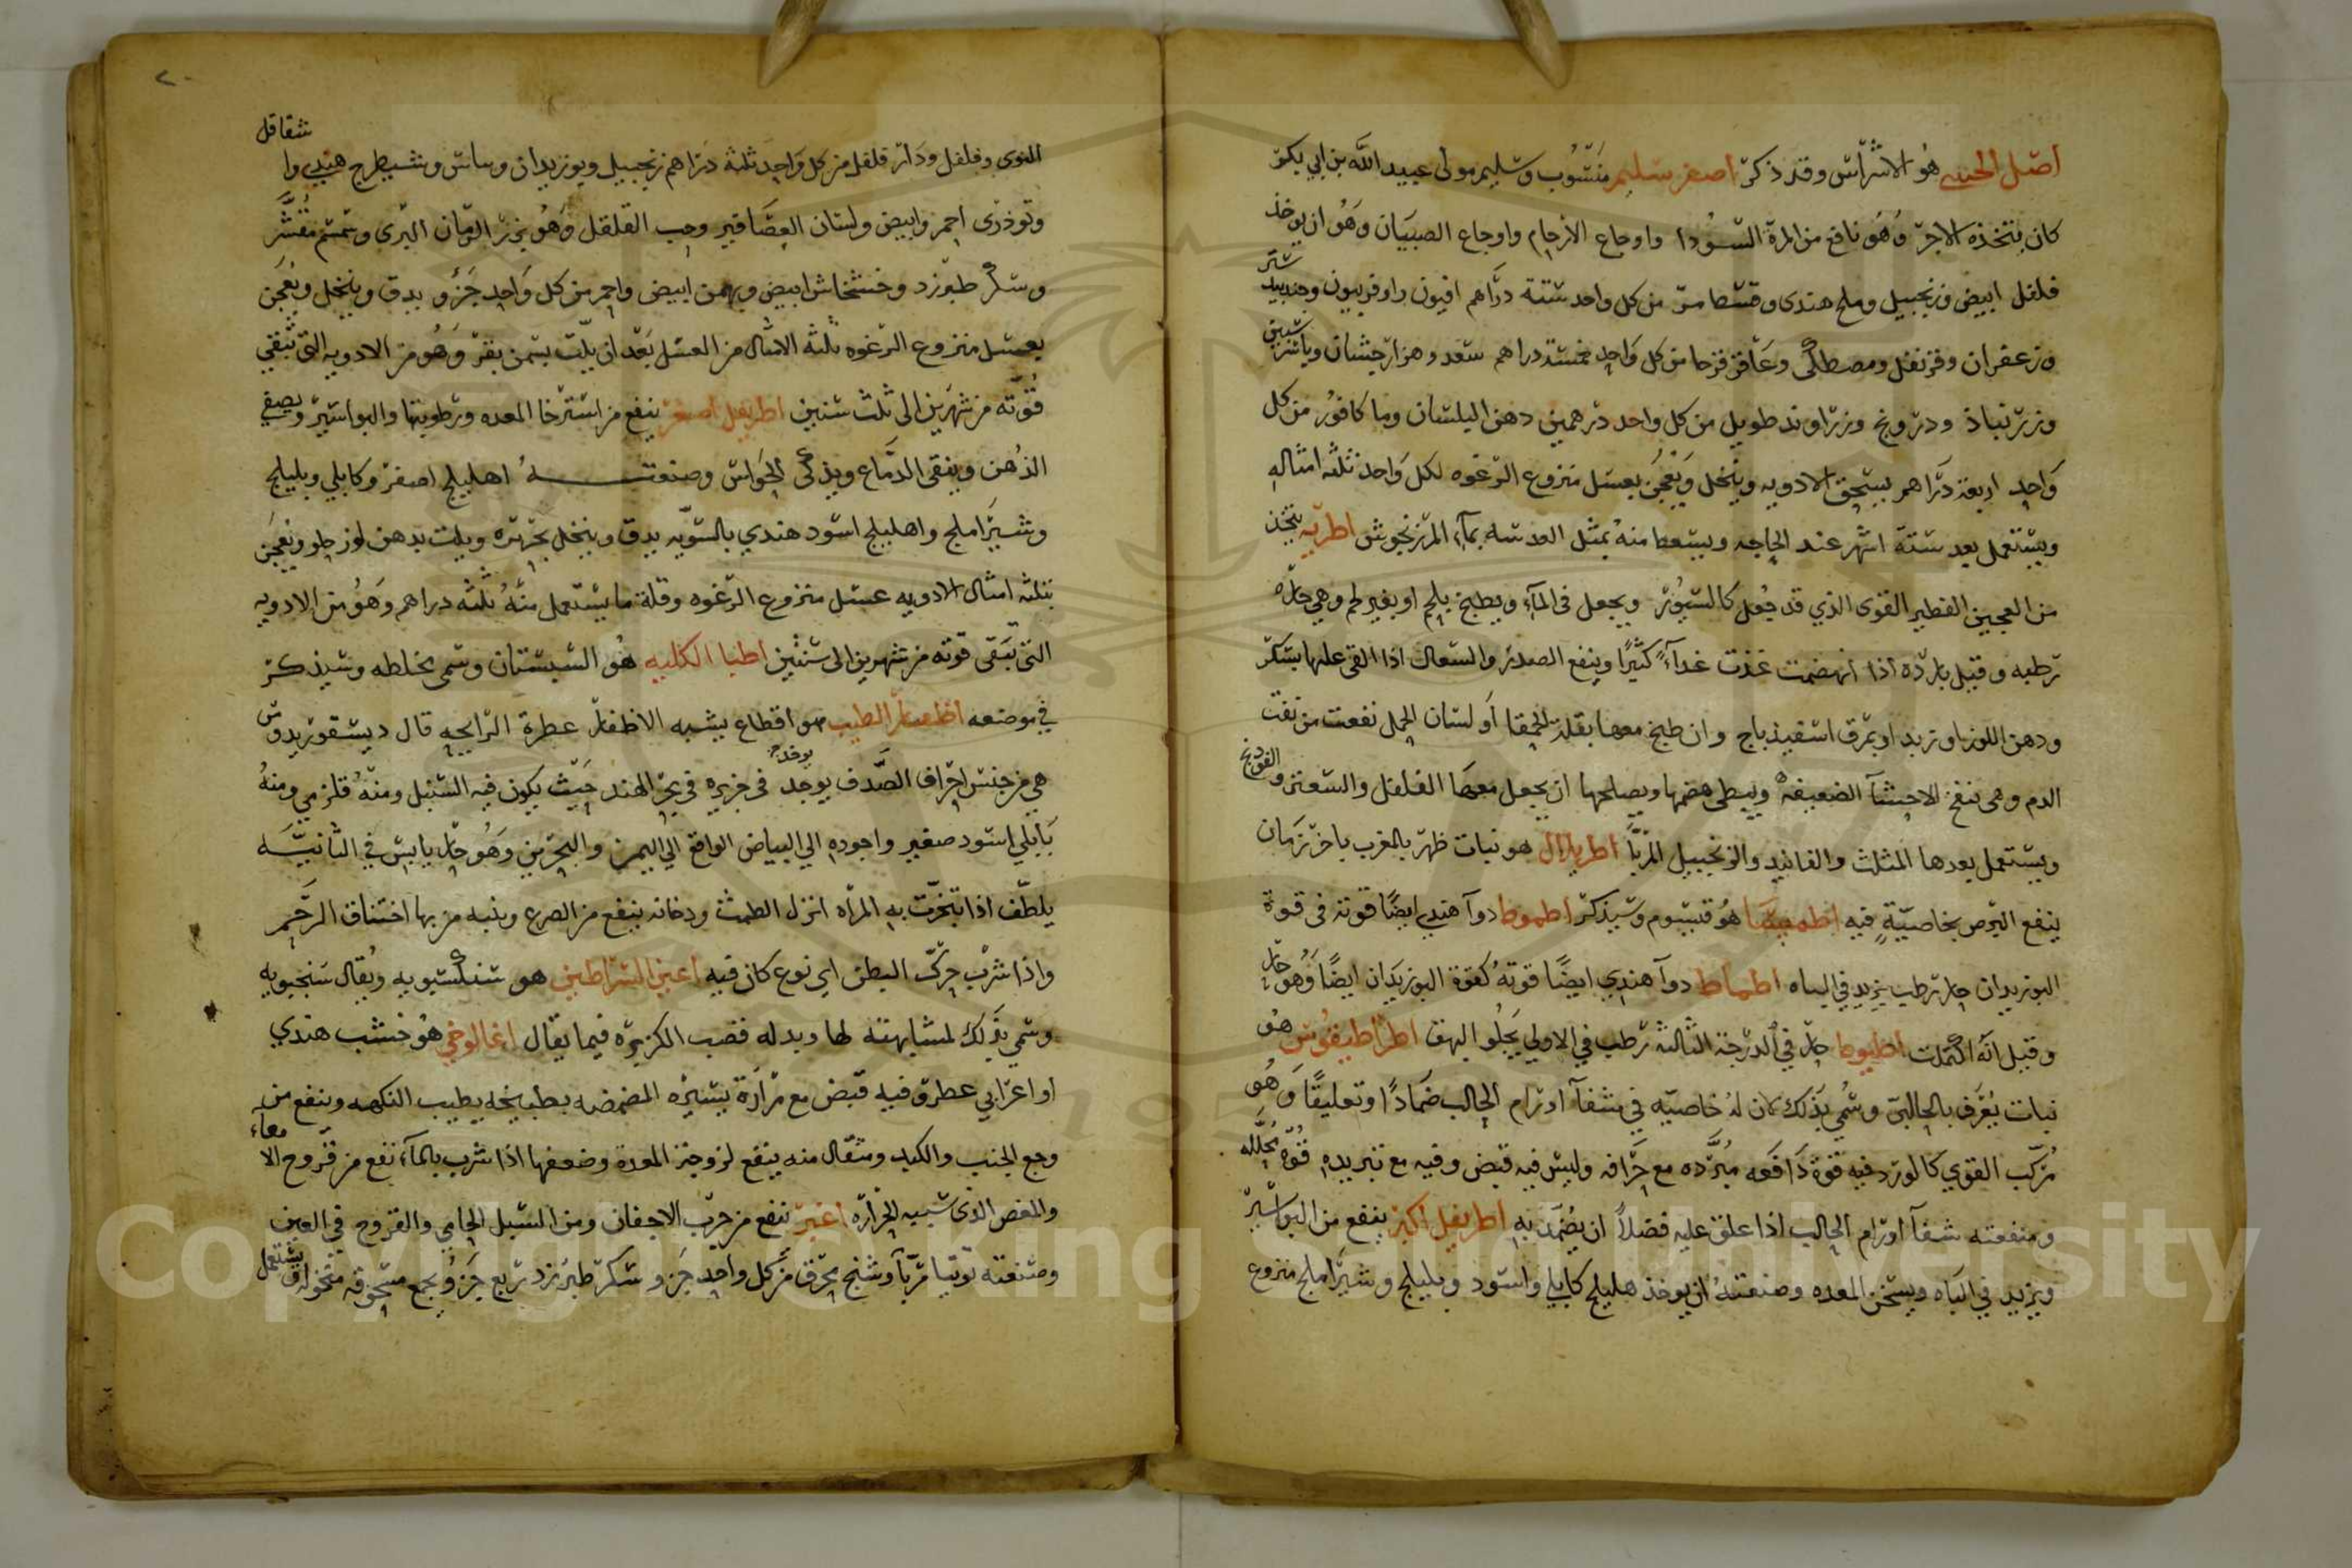 اصل الخنثى هو الاشراس وقد ذكر اصفر سليم منسوب وسليم مولى عبيد الله بن ابي بكر
كان يتخذه الاجر وهو نافع من المرة السودا واوجاع الارحام واوجاع الصبيان وهو ان يوخذ
فلفل ابيض وزنجبيل وملح هندى وقسط مر من كل واحد ستة دراهم افيون وافربيون وجندبيدستر
وزعفران وقرنفل ومصطكى وعاقر قرحا من كل واحد خمسة دراهم سعد وهزارجشان وباشترين
وزرنباد ودرونج وزراوند طويل من كل واحد درهمين دهن البلسان وما كافور من كل
واحد اربعة دراهم يستحق الادويه وينخل ويعجن بعسل منزوع الرغوه لكل واحد ثلثه امثاله
ويستعمل بعد ستة اشهر عند الحاجه ويسعط منه بمثل العدسه بمآء المرزنجوش اطريه يتخذ
من العجين الفطير القوى الذي قد جعل كالسيور ويجعل فى المآء ويطبخ بلحم او بغير لحم وهي حاره
رطبه وقيل بارده اذا انهضمت غذت غدآء كثيرا وينفع الصدر والسعال اذا القى عليها سكر
ودهن اللوز او زبد او بمرق اسفيذباج وان طبخ معها بقلة الحمقا او لسان الحمل نفعت من نفث
الدم وهى تنفخ الاحشآ الضعيفه ويبطى هضمها ويصلحها ان يجعل معها الفلفل والسعتر والفوذنج
ويستعمل بعدها المثلث والفانيد والزنجبيل المربا اطريلال هو نبات ظهر بالمغرب باخر زمان
ينفع البرص بخاصيّةٍ فيه اطميسا هو قيسوم وسيذكر اطموط دوآ هندي ايضا قوته فى قوة
البوزيدان حار رطب يزيد في الباه اطماط دوآ هندي ايضًا قوته كقوة البوزيدان ايضا وهو حار
وقيل انه اكتمكت اطيوط حار في الدرجة الثالثه رطب في الاولي يجلو البهق اطراطيقوس هو
نبات يعرف بالحالبى وسمي بذلك لان له خاصيّه في شفآ اورام الحالب ضمادًا وتعليقًا وهو
مركب القوي كالورد فيه قوة دافعه مبرده مع حرافه وليس فيه قبض وفيه مع تبريده قوة محلله
ومنفعته شفآ اورام الحالب اذا علق عليه فضلا ان يضمد به اطريفل اكبر ينفع من البواسير
ويزيد في الباه ويسخن المعده وصنعته ان يوخذ هليلج كابلي واسود وبليلج وشير املج منزوع
النوى وفلفل ودار فلفل من كل واحد ثلثة دراهم زنجبيل وبوزيدان وساس وشيطرج هندي وا شقاقل
وتوذرى احمر وابيض ولسان العصافير وحب القلقل وهو بزر الرمان البرى وسمسم مقشر
وسكر طبرزد وخشخاش ابيض وبهمن ابيض واحمر من كل واحد جزو يدق وينخل ويعجن
بعسل منزوع الرغوه ثلثة الامثال من العسل بعد ان يلت بسمن بقر وهو من الادويه التى تبقي
قوته من شهرين الى ثلث سنين اطريفل اصغر ينفع من استرخا المعده ورطوبتها والبواسير ويصفي
الذهن وينقى الدماغ ويذكى الحواس وصنعته اهليلج اصفر وكابلي وبليلج
وشير املج واهليلج اسود هندي بالسويه يدق وينخل بحريره ويلت بدهن لوز حلو ويعجن
بثلثه امثال الادويه عسل منزوع الرغوه وقلة ما يستعمل منه ثلثه دراهم وهو من الادويه
التى تبقى قوته من شهرين الى سنتين اطبا الكلبه هو السبستان وسمى مخاطه وسيذكر
في موضعه اظفار الطيب هو اقطاع يشبه الاظفار عطرة الرايحه قال ديسقوريدوس
هي من جنس اخزاف الصدف يوجد يوخذ فى جزيره في بحر الهند حيث يكون فيه السنبل ومنه قلزمي ومنه
بابلي اسود صغير واجوده الي البياض الواقع الي اليمن والبحرين وهو حار يابس في الثانيه
يلطف اذا تبخرت به المراه انزل الطمث ودخانه ينفع من الصرع وينبه من بها اختناق الرحم
واذا شرب حرك البطن اي نوع كان فيه اعين السراطين هو سنكسبويه ويقال سنجبويه
وسمي بذلك لمشابهته لها وبدله قصب الكزبره فيما يقال اغالوخي هو خشب هندي
او اعرابي عطر فيه قبض مع مرارة يسيره المضمضه بطبيخه يطيب النكهه وينفع من
وجع الجنب والكبد ومثقال منه ينفع لزوجة المعدة وضعفها اذا شرب بالمآء نفع من قروح الامعاء
والمغص الذى سببه الحراره اغبر ينفع من جرب الاجفان ومن السبل الحامي والقروح في العين
وصنعته توتيا مربا وشنج محرق من كل واحد جزو سكر طبرزد ربع جزو يجمع مسحوقه منخوله ويستعمل